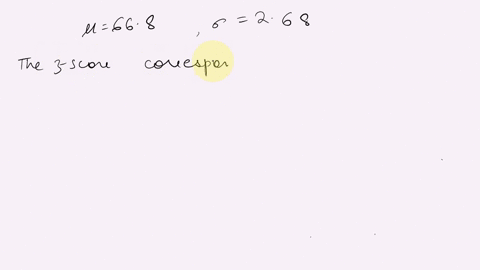 μ=66.8 , σ = 2.68
The z-score corespon